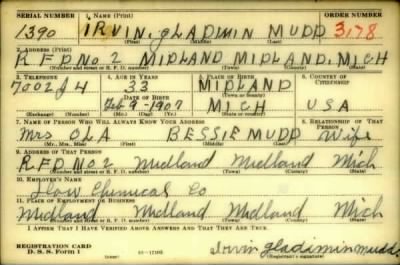 SERIAL NUMBER 1. NAME (Print) ORDER NUMBER
1390 IRVIN, GLADIMIN MUDD 3178
(First) (Middle) (Last)
2. ADDRESS (Print)
R F D NO 2 MIDLAND MIDLAND, MICH
(Number and street or R. F. D. number) (Town) (County) (State)
3. TELEPHONE 4. AGE IN YEARS 5. PLACE OF BIRTH 6. COUNTRY OF CITIZENSHIP
7002 J 4 33 MIDLAND
DATE OF BIRTH
Feb 9-1907 MICH USA
(Exchange) (Number) (Mo.) (Day) (Yr.) (State or country)
7. NAME OF PERSON WHO WILL ALWAYS KNOW YOUR ADDRESS 8. RELATIONSHIP OF THAT PERSON
Mrs OLA BESSIE MUDD Wife
(Mr., Mrs., Miss) (First) (Middle) (Last)
9. ADDRESS OF THAT PERSON
R.F.D. No. 2 Midland Midland Mich
(Number and street or R. F. D. number) (Town) (County) (State)
10. EMPLOYER'S NAME
Dow Chemical Co
11. PLACE OF EMPLOYMENT OR BUSINESS
Midland Midland Midland Mich
(Number and street or R. F. D. number) (Town) (County) (State)
I AFFIRM THAT I HAVE VERIFIED ABOVE ANSWERS AND THAT THEY ARE TRUE.
REGISTRATION CARD
D. S. S. Form 1 Irvin gladimin mudd
(Registrant's signature)